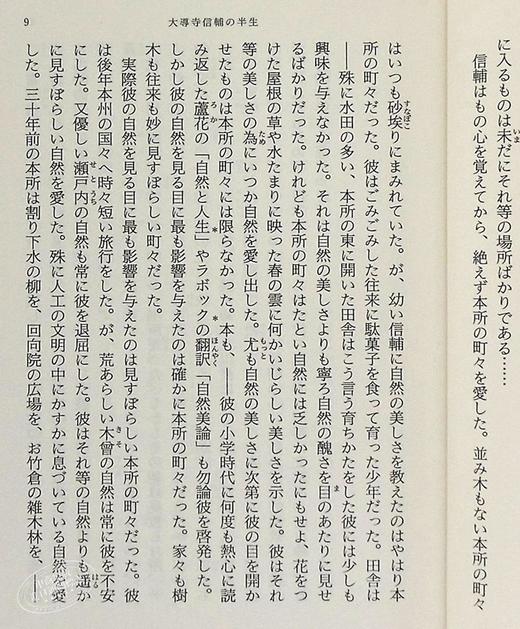 に入るものは未だにそれ等の場所ばかりである……
信輔はもの心を覚えてから、絶えず本所の町々を愛した。並み木もない本所の町々
大導寺信輔の半生
9
はいつも砂埃りにまみれていた。が、幼い信輔に自然の美しさを教えたのはやはり本
所の町々だった。彼はごみごみした往来に駄菓子を食って育った少年だった。田舎は
――殊に水田の多い、本所の東に開いた田舎はこう言う育ちかたをした彼には少しも
興味を与えなかった。それは自然の美しさよりも寧ろ自然の醜さを目のあたりに見せ
るばかりだった。けれども本所の町々はたとい自然には乏しかったにもせよ、花をつ
けた屋根の草や水たまりに映った春の雲に何かいじらしい美しさを示した。彼はそれ
等の美しさの為にいつか自然を愛し出した。尤も自然の美しさに次第に彼の目を開か
せたものは本所の町々には限らなかった。本も、――彼の小学時代に何度も熱心に読
み返した蘆花の「自然と人生」やラボックの翻訳「自然美論」も勿論彼を啓発した。
しかし彼の自然を見る目に最も影響を与えたのは確かに本所の町々だった。家々も樹
木も往来も妙に見すぼらしい町々だった。
実際彼の自然を見る目に最も影響を与えたのは見すぼらしい本所の町々だった。彼
は後年本州の国々へ時々短い旅行をした。が、荒あらしい木曾の自然は常に彼を不安
にした。又優しい瀬戸内の自然も常に彼を退屈にした。彼はそれ等の自然よりも遥か
に見すぼらしい自然を愛した。殊に人工の文明の中にかすかに息づいている自然を愛
した。三十年前の本所は割り下水の柳を、回向院の広場を、お竹倉の雑木林を、――